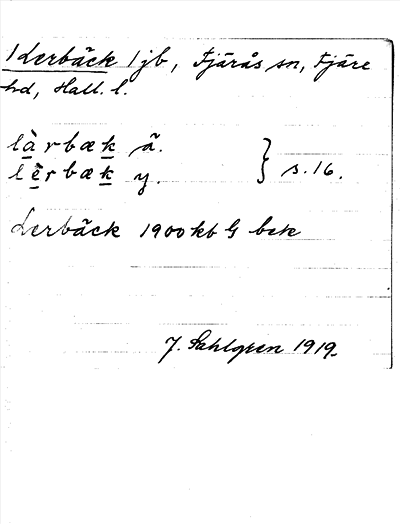 /Lerbäck/ jb, Fjärås sn, Fjäre
hd, Hall. l.
làrbæk ä. } s. 16.
lèrbæk y.
Lerbäck 1900 kb G bek
J. Sahlgren 1919.